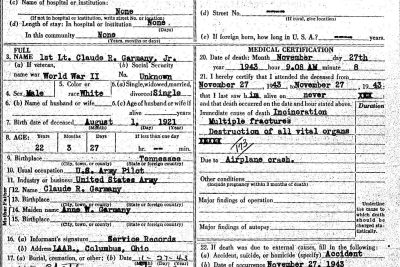 (c) Name of hospital or institution:
None
(If not in hospital or institution, write street No. or location)
(d) Length of stay: In hospital or Institution None
In this community None
(Years, months or days)
FULL
3. NAME 1st Lt. Claude R. Garmany, Jr.
3. (a) If veteran, (b) Social Security
name war World War II No. Unknown
4. Sex Male 5. Color or race White 6. (a) Single, widowed, married, divorced Single
6. (b) Name of husband or wife 6. (c) Age of husband or wife if
alive years
7. Birth date of deceased August 1, 1921
(Month) (Day) (Year)
8. AGE: Years Months Days If less than one day
22 3 27 hr. min.
9. Birthplace Tennessee
(City, town, or county) (State or foreign country)
10. Usual occupation U.S. Army Pilot
11. Industry or business United States Army
12. Name Claude R. Garmany
13. Birthplace
(City, town, or county) (State or foreign country)
14. Maiden name Anne W. Garmany
15. Birthplace
(City, town, or county) (State or foreign country)
16. (a) Informant's signature Service Records
(b) Address LAAB, Columbus, Ohio
17. (a) Burial, cremation, or other; (b) Date 11-27-43
(d) Street No.
(If rural, give location)
(e) If foreign born, how long in U. S. A.? years
MEDICAL CERTIFICATION
20. Date of death: Month November day 27th
year 1943 hour 9.08 AM minute 8
21. I hereby certify that I attended the deceased from
November 27 1943, November 27, 1943
that I last saw him alive on never
and that death occurred on the date and hour stated above. Duration
Immediate cause of death Incineration
Multiple fractures
Destruction of all vital organs
173
Due to Airplane crash.
Other conditions
(Include pregnancy within 3 months of death)
Major findings of operation
Underline the cause to which death should be charged statistically.
Major findings of autopsy
22. If death was due to external causes, fill in the following:
(a) Accident, suicide, or homicide (specify) Accident
(b) Date of occurrence November 27, 1943
Mother Father